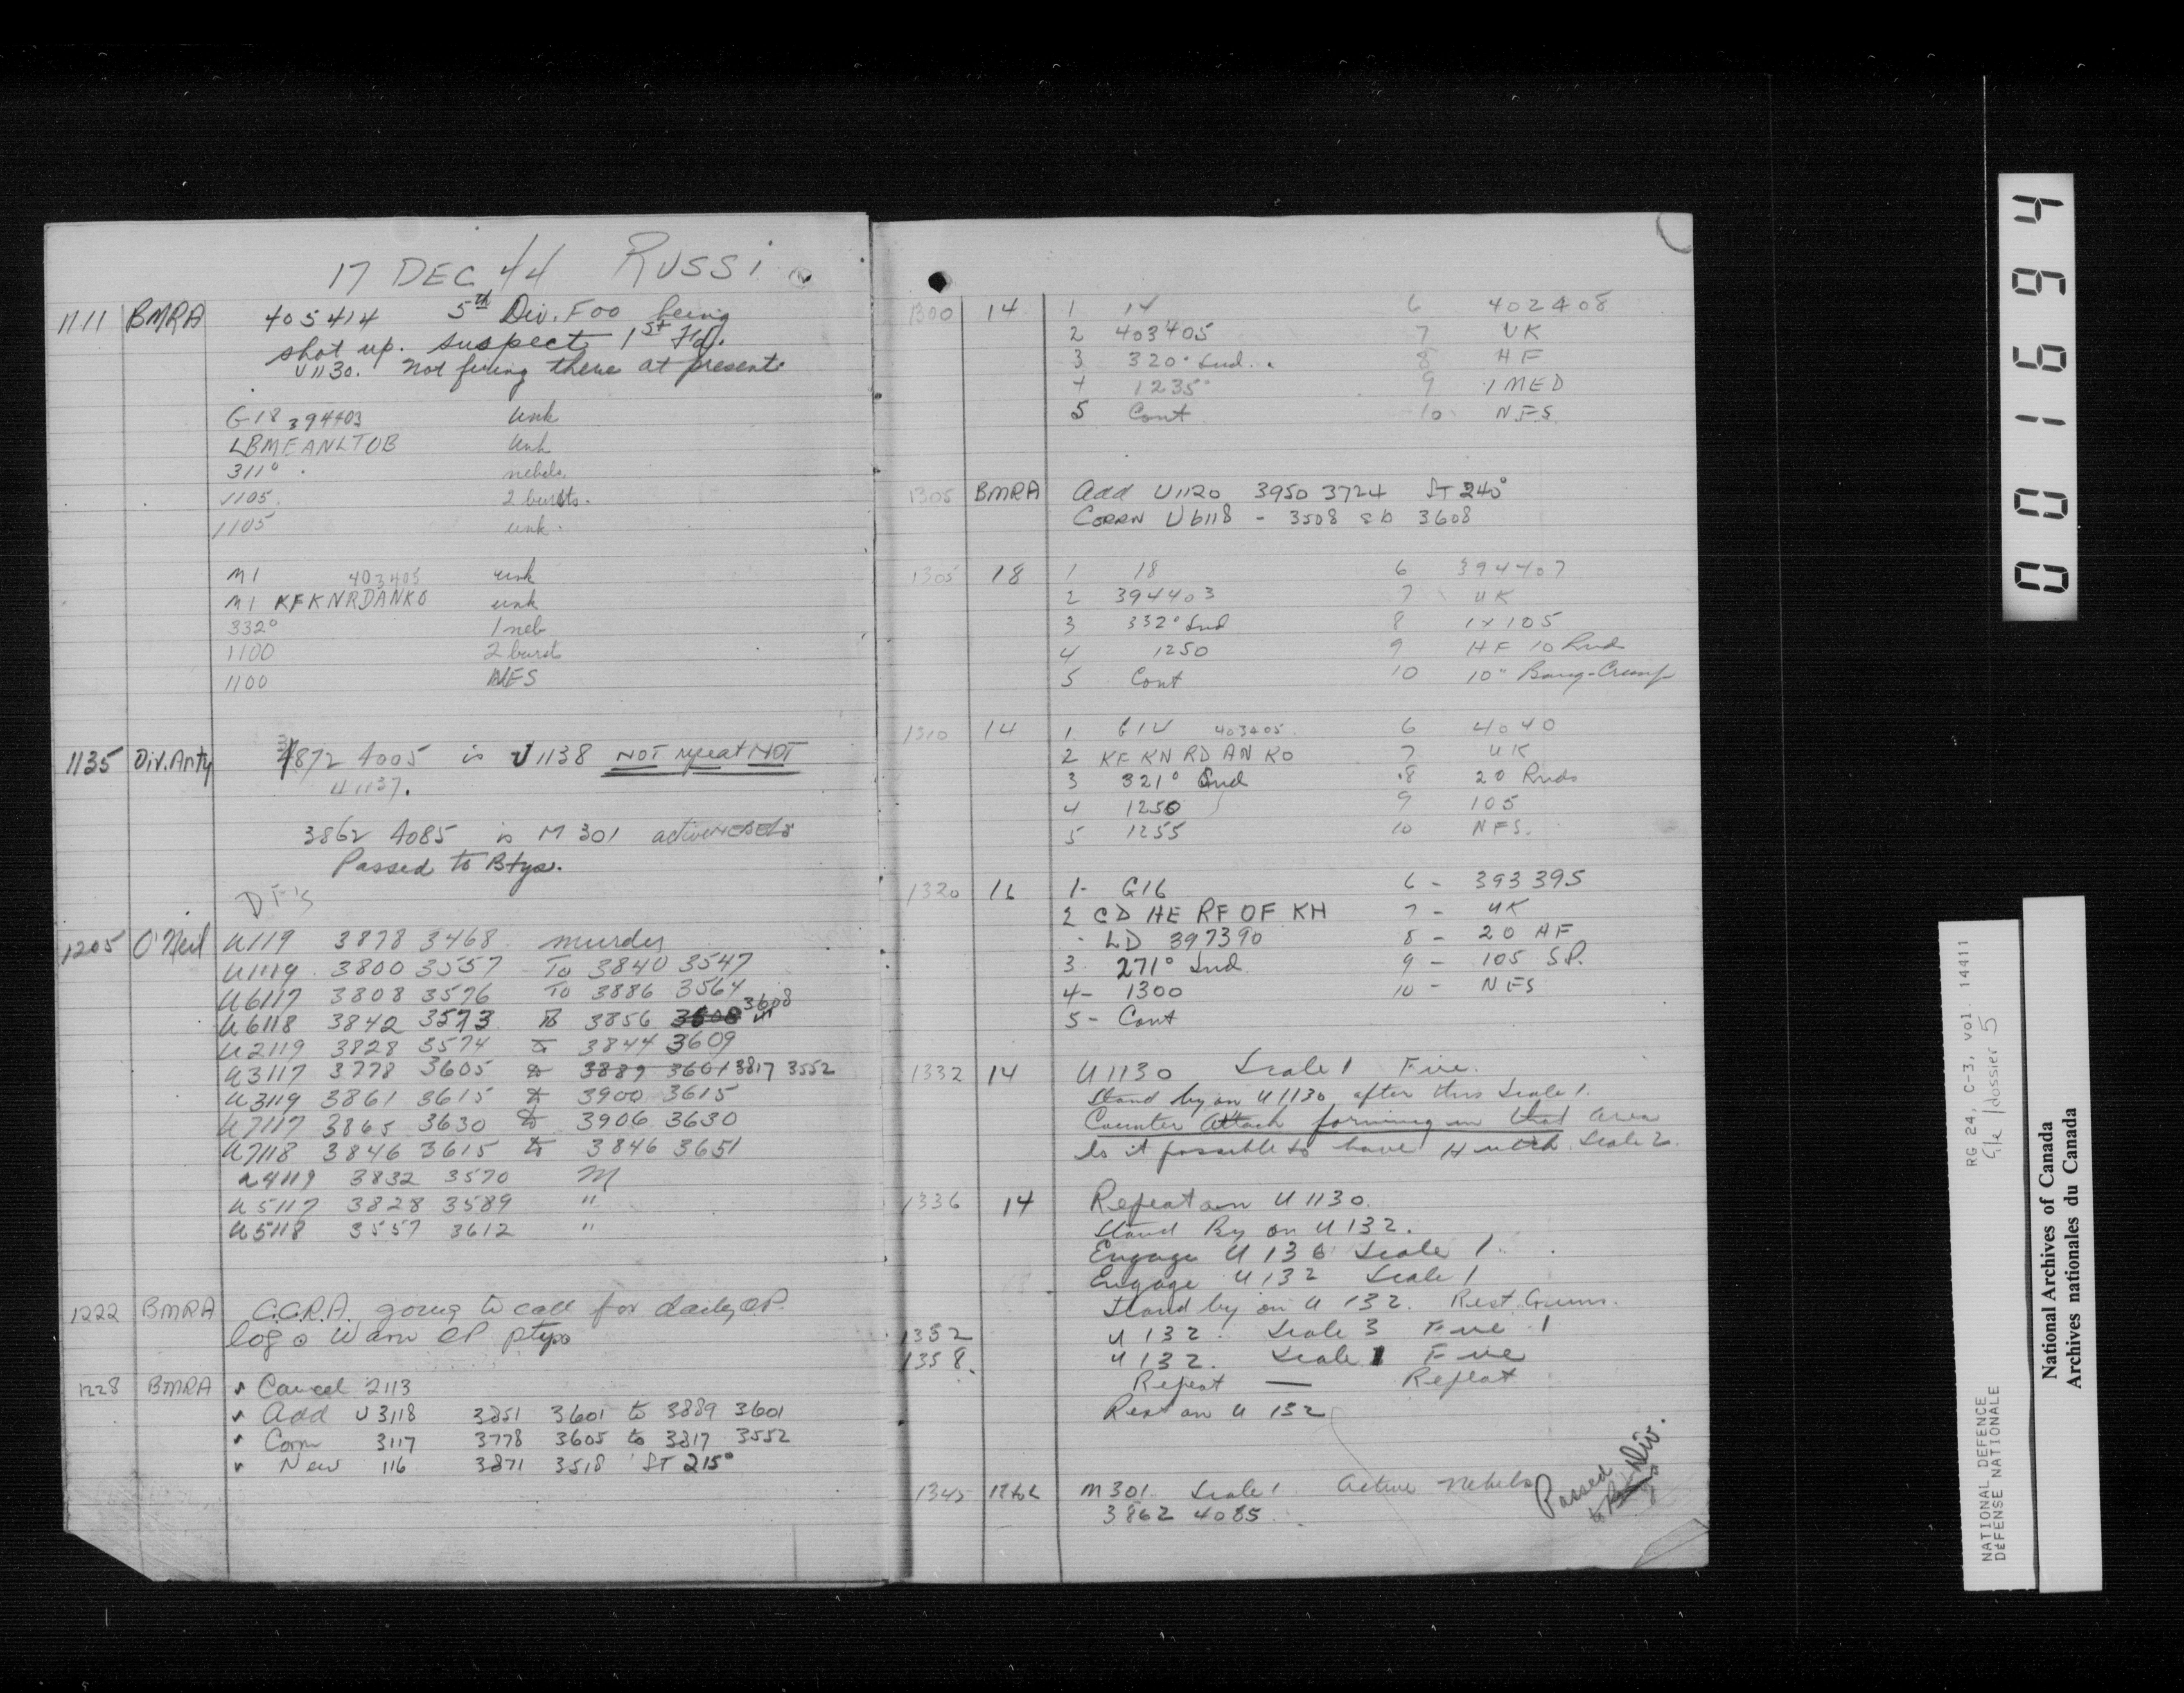 17 DEC 44 RUSSI
1111 BMRA 405414 5th Div. Foo being
shot up. suspect 1st Fd.
U1130. Not firing there at present.
G18 394403 unk
LBMEANLTOB unk
311° nebels
1105. 2 bursts.
1105 unk.
M1 403405 unk
M1 KFKNRDANKO unk
332° 1 neb
1100 2 burst
1100 NFS
1135 Div. Arty 3872 4005 is U1138 NOT repeat NOT
U1137.
3862 4085 is M301 active NEBELS
Passed to Btys.
DF's
1205 O'Neil U119 3878 3468 murder
U1119 3800 3557 To 3840 3547
U6117 3808 3576 To 3886 3564
U6118 3842 3573 to 3856 3608 3608
U2119 3828 3574 to 3844 3609
U3117 3778 3605 to 3889 3601 3817 3552
U3119 3861 3615 to 3900 3615
U7117 3865 3630 to 3906 3630
U7118 3846 3615 to 3846 3651
U4119 3832 3570 M
U5117 3828 3589 "
U5118 3557 3612 "
1222 BMRA C.C.R.A. going to call for daily OP.
log o Warn OP ptys
1228 BMRA Cancel 2113
Add U3118 3851 3601 to 3889 3601
Corrn 3117 3778 3605 to 3817 3552
New 116 3871 3518 ST 215°
1300 14 1 14 6 402408
2 403405 7 UK
3 320° Snd. 8 HF
4 1235 9 1 MED
5 Cont 10 NFS.
1305 BMRA Add U1120 3950 3724 ST 240°
CORRN U6118 - 3508 s b 3608
1305 18 1 18 6 394407
2 394403 7 UK
3 332° Snd 8 1x105
4 1250 9 HF 10 Rnds
5 Cont 10 10" Bang-Crump
1310 14 1. G14 403405. 6 4040
2 KF KN RD AN KO 7 UK
3 321° Snd 8 20 Rnds
4 1250 9 105
5 1255 10 NFS.
1320 16 1- G16 6 - 393395
2 CD HE RF OF KH 7 - UK
LD 397390 8 - 20 HF
3. 271° Snd 9 - 105 SP.
4- 1300 10 - NFS
5- Cont
1332 14 U1130 Scale 1 Fire.
Stand by on U1130 after this Scale 1.
Counter Attack forming in that area
Is it possible to have Scale 2.
1336 14 Repeat on U1130.
Stand By on U132.
Engage U130 Scale 1.
Engage U132 Scale 1
Stand by on U132. Rest Guns.
1352 U132. Scale 3 Fire 1
1358. U132. Scale 1 Fire
Repeat — Repeat
Rest on U132
1345 M301. Scale 1. Active Nebels
3862 4085.
Passed
to Div.
001694
RG 24, C-3, vol. 14411
file/dossier 5
NATIONAL DEFENCE
DÉFENSE NATIONALE
National Archives of Canada
Archives nationales du Canada